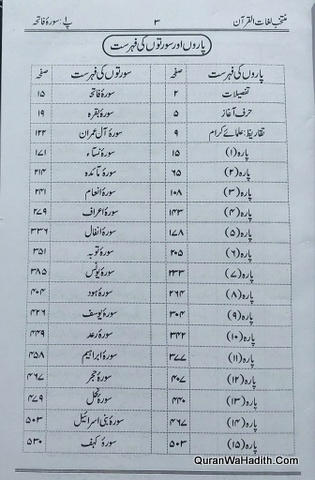 منتخب لغات القرآن ۳ پ۱: سورۂ فاتحہ
پاروں اور سورتوں کی فہرست
پاروں کی فہرست صفحہ سورتوں کی فہرست صفحہ
تفصیلات ۲ سورۂ فاتحہ ۱۵
حرف آغاز ۵ سورۂ بقرہ ۱۹
تقاریظ: علمائے کرام ۹ سورۂ آل عمران ۱۲۲
پارہ (۱) ۱۵ سورۂ نساء ۱۷۱
پارہ (۲) ۶۵ سورۂ مائدہ ۲۱۴
پارہ (۳) ۱۰۸ سورۂ انعام ۲۴۱
پارہ (۴) ۱۴۳ سورۂ اعراف ۲۷۹
پارہ (۵) ۱۷۸ سورۂ انفال ۳۳۶
پارہ (۶) ۲۰۵ سورۂ توبہ ۳۵۱
پارہ (۷) ۲۳۳ سورۂ یونس ۳۸۵
پارہ (۸) ۲۶۴ سورۂ ہود ۴۰۴
پارہ (۹) ۳۰۴ سورۂ یوسف ۴۲۶
پارہ (۱۰) ۳۴۲ سورۂ رعد ۴۴۹
پارہ (۱۱) ۳۷۷ سورۂ ابراہیم ۴۵۸
پارہ (۱۲) ۴۰۷ سورۂ حجر ۴۶۷
پارہ (۱۳) ۴۴۰ سورۂ نحل ۴۷۹
پارہ (۱۴) ۴۶۷ سورۂ بنی اسرائیل ۵۰۳
پارہ (۱۵) ۵۰۳ سورۂ کہف ۵۳۰
QuranWaHadith.Com